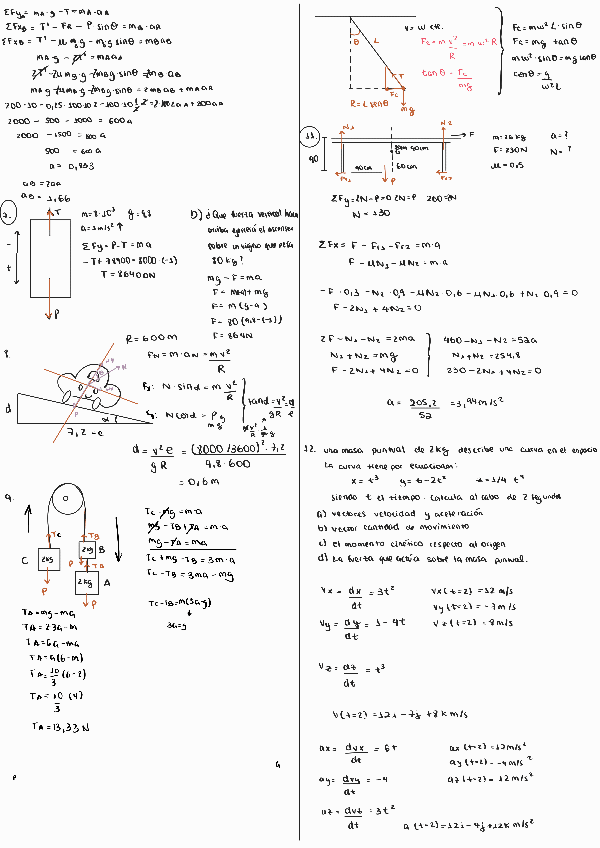 ΣFyA = mA·g - T = mA·aA
ΣFxB = T' - FR - P sinθ = mB·aB
ΣFxB = T' - μ mBg - mBg sinθ = mB aB
mA·g - T' = mA aA
T' - μ mBg - mBg·sinθ = mB aB
mA·g - μ mBg - mBg sinθ = 2mB aB + mA aA
2000 - 500 - 1000 = 600a
2000 - 1500 = 600a
500 = 600a
a = 0,833
aB = 2aA
aB = 1,66
7.
T
P
m = 8·10³ g = 9,8
a = 1 m/s² ↑
ΣFy = P - T = ma
- T + 78400 = 8000·(-1)
T = 86400N
b) ¿Que fuerza vertical hacia
arriba ejercerá el ascensor
sobre un signo que pesa
80 kg?
mg - F = ma
F = m(-a) + mg
F = m (g-a)
F = 80 (9,8-(-1))
F = 864N
8.
R = 600m
d
7,2 - e
FN = m·aN = m v²/R
Fx: N·sinα = m v²/R
Fy: N cosα = P mg
tanα = v²/gR = d/e
d = v²e/gR = (8000/3600)²·7,2/9,8·600
= 0,6m
9.
Tc
TB
C
2kg
2kg
B
P
P
TA
2kg
A
P
Tc - mg = m·a
mg - TB + TA = m·a
mg - TA = ma
Tc + mg - TB = 3m·a
Tc - TB = 3ma - mg
Tc - TB = m(3a-g)
3a = g
TA = mg - ma
TA = 10/3 (6-2)
TA = 10/3 (4)
TA = 13,33 N
θ
L
T
Fc
R = L senθ
mg
v = w·R
Fc = m v²/R = m w² R
tanθ = Fc/mg
Fc = mw² L·sinθ
Fc = mg tanθ
mw²·sinθ = mg tanθ
cosθ = g/w²L
11.
N1
N2
F
90
90cm
60cm
Fr1
P
Fr2
m = 26kg a = ?
F = 230N N = ?
μ = 0,5
ΣFy = 2N - P = 0 2N = P 260 = 2N
N = 130
ΣFx = F - Fr1 - Fr2 = m·a
F - μN1 - μN2 = m·a
-F·0,3 - N2·0,9 - μN2·0,6 - μN1·0,6 + N1·0,9 = 0
F - 2N1 + 4N2 = 0
2F - N1 - N2 = 2ma
N1 + N2 = mg
F - 2N1 + 4N2 = 0
460 - N1 - N2 = 52a
N1 + N2 = 254,8
230 - 2N1 + 4N2 = 0
a = 205,2/52 = 3,94 m/s²
12. una masa puntual de 2kg describe una curva en el espacio
La curva tiene por ecuaciones:
x = t³ y = t - 2t² z = 1/4 t⁴
Siendo t el tiempo. Calcula al cabo de 2 segundos
a) vectores velocidad y aceleración
b) vector cantidad de movimiento
c) el momento cinético respecto al origen
d) La fuerza que actúa sobre la masa puntual.
Vx = dx/dt = 3t² Vx (t=2) = 12 m/s
Vy (t=2) = -7 m/s
Vy = dy/dt = 1 - 4t Vz (t=2) = 8 m/s
Vz = dz/dt = t³
V(t=2) = 12i - 7j + 8k m/s
ax = dvx/dt = 6t ax (t=2) = 12 m/s²
ay (t=2) = -4 m/s²
ay = dvy/dt = -4 az (t=2) = 12 m/s²
az = dvz/dt = 3t²
a (t=2) = 12i - 4j + 12k m/s²